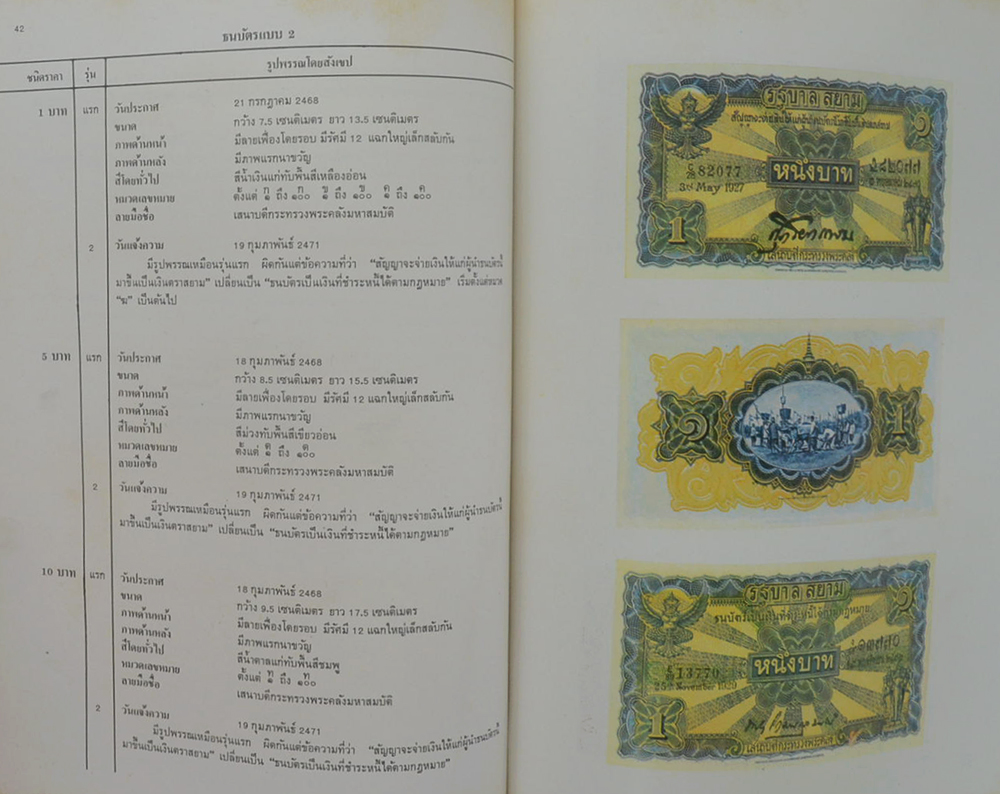 42
ธนบัตรแบบ 2
ชนิดราคา รุ่น รูปพรรณโดยสังเขป
1 บาท แรก วันประกาศ 21 กรกฎาคม 2468
ขนาด กว้าง 7.5 เซนติเมตร ยาว 13.5 เซนติเมตร
ภาพด้านหน้า มีลายเฟื่องโดยรอบ มีรัศมี 12 แฉกใหญ่เล็กสลับกัน
ภาพด้านหลัง มีภาพแรกนาขวัญ
สีโดยทั่วไป สีน้ำเงินแก่ทับพื้นสีเหลืองอ่อน
หมวดเลขหมาย ตั้งแต่ ก/๑ ถึง ก/๑๐๐ ข/๑ ถึง ข/๑๐๐ ค/๑ ถึง ค/๑๐๐
ลายมือชื่อ เสนาบดีกระทรวงพระคลังมหาสมบัติ
2 วันแจ้งความ 19 กุมภาพันธ์ 2471
มีรูปพรรณเหมือนรุ่นแรก ผิดกันแต่ข้อความที่ว่า “สัญญาจะจ่ายเงินให้แก่ผู้นำธนบัตรนี้
มาขึ้นเป็นเงินตราสยาม” เปลี่ยนเป็น “ธนบัตรเป็นเงินที่ชำระหนี้ได้ตามกฎหมาย” เริ่มตั้งแต่หมวด
เป็นต้นไป
5 บาท แรก วันประกาศ 18 กุมภาพันธ์ 2468
ขนาด กว้าง 8.5 เซนติเมตร ยาว 15.5 เซนติเมตร
ภาพด้านหน้า มีลายเฟื่องโดยรอบ มีรัศมี 12 แฉกใหญ่เล็กสลับกัน
ภาพด้านหลัง มีภาพแรกนาขวัญ
สีโดยทั่วไป สีม่วงทับพื้นสีเขียวอ่อน
หมวดเลขหมาย ตั้งแต่ ถึง
ลายมือชื่อ เสนาบดีกระทรวงพระคลังมหาสมบัติ
2 วันแจ้งความ 19 กุมภาพันธ์ 2471
มีรูปพรรณเหมือนรุ่นแรก ผิดกันแต่ข้อความที่ว่า “สัญญาจะจ่ายเงินให้แก่ผู้นำธนบัตรนี้
มาขึ้นเป็นเงินตราสยาม” เปลี่ยนเป็น “ธนบัตรเป็นเงินที่ชำระหนี้ได้ตามกฎหมาย”
10 บาท แรก วันประกาศ 18 กุมภาพันธ์ 2468
ขนาด กว้าง 9.5 เซนติเมตร ยาว 17.5 เซนติเมตร
ภาพด้านหน้า มีลายเฟื่องโดยรอบ มีรัศมี 12 แฉกใหญ่เล็กสลับกัน
ภาพด้านหลัง มีภาพแรกนาขวัญ
สีโดยทั่วไป สีน้ำตาลแก่ทับพื้นสีชมพู
หมวดเลขหมาย ตั้งแต่ ถึง
ลายมือชื่อ เสนาบดีกระทรวงพระคลังมหาสมบัติ
2 วันแจ้งความ 19 กุมภาพันธ์ 2471
มีรูปพรรณเหมือนรุ่นแรก ผิดกันแต่ข้อความที่ว่า “สัญญาจะจ่ายเงินให้แก่ผู้นำธนบัตรนี้
มาขึ้นเป็นเงินตราสยาม” เปลี่ยนเป็น “ธนบัตรเป็นเงินที่ชำระหนี้ได้ตามกฎหมาย”
รัฐบาล สยาม
๑
82077 ๘๒๐๗๗
หนึ่งบาท
3rd May 1927
1
เสนาบดีกระทรวงพระคลัง
๑ 1
รัฐบาล สยาม
๑
ธนบัตรเป็นเงินที่ชำระหนี้ได้ตามกฎหมาย
13770 ๑๓๗๗๐
หนึ่งบาท
25th November 1929
1
เสนาบดีกระทรวงพระคลัง